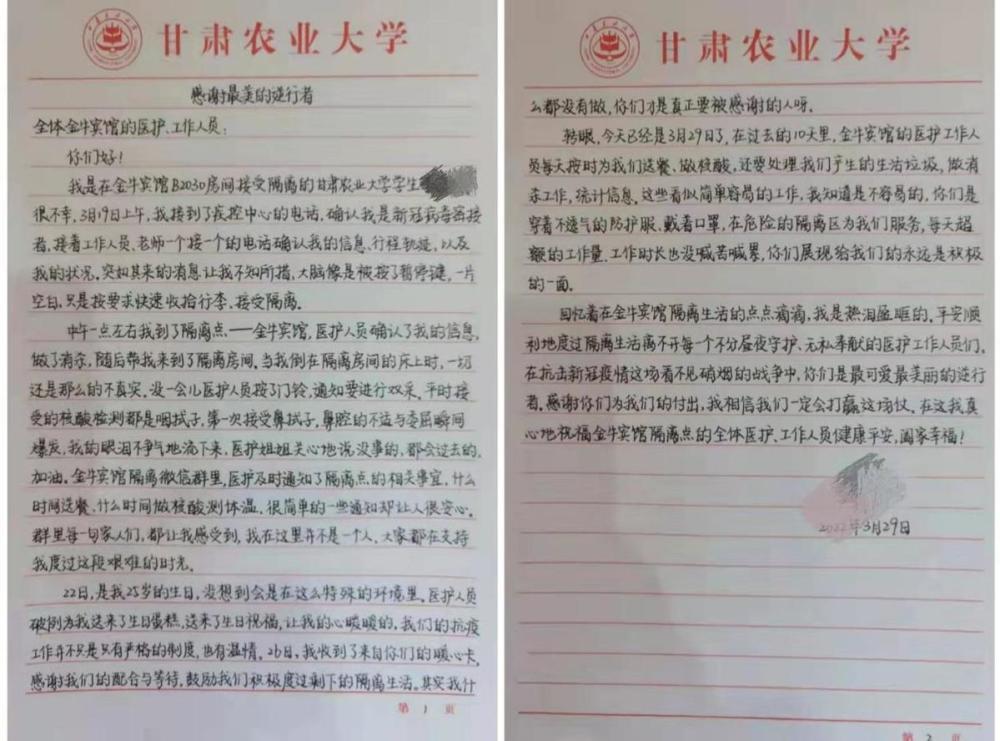 甘肃农业大学
感谢最美的逆行者
全体金牛宾馆的医护、工作人员：
你们好！
我是在金牛宾馆B2030房间接受隔离的甘肃农业大学学生
很不幸，3月19日上午，我接到了疾控中心的电话，确认我是新冠病毒密接
者，接着工作人员、老师一个接一个的电话确认我的信息、行程轨迹，以及
我的状况，突如其来的消息让我不知所措，大脑像是被按了暂停键，一片
空白，只是按要求快速收拾行李、接受隔离。
中午一点左右我到了隔离点——金牛宾馆，医护人员确认了我的信息，
做了消杀，随后带我来到了隔离房间，当我倒在隔离房间的床上时，一切
还是那么的不真实，没一会儿医护人员按了门铃，通知要进行双采，平时接
受的核酸检测都是咽拭子，第一次接受鼻拭子，鼻腔的不适与委屈瞬间
爆发，我的眼泪不争气地流下来，医护姐姐关心地说没事的，都会过去的，
加油。金牛宾馆隔离微信群里，医护及时通知了隔离点的相关事宜，什么
时间送餐、什么时间做核酸测体温，很简单的一些通知却让人很安心。
群里每一句家人们，都让我感受到，我在这里并不是一个人，大家都在支持
我度过这段艰难的时光。
22日，是我25岁的生日，没想到会是在这么特殊的环境里，医护人员
破例为我送来了生日蛋糕，送来了生日祝福，让我的心暖暖的，我们的抗疫
工作并不只是只有严格的制度，也有温情。26日，我收到了来自你们的暖心卡，
感谢我们的配合与等待，鼓励我们积极度过剩下的隔离生活。其实我什
第 1 页
甘肃农业大学
么都没有做，你们才是真正要被感谢的人呀。
转眼，今天已经是3月29日了，在过去的10天里，金牛宾馆的医护工作人
员每天按时为我们送餐、做核酸，还要处理我们产生的生活垃圾，做消
杀工作，统计信息，这些看似简单容易的工作，我知道是不容易的，你们是
穿着不透气的防护服、戴着口罩，在危险的隔离区为我们服务，每天超
额的工作量、工作时长也没喊苦喊累，你们展现给我们的永远是积极
的一面。
回忆着在金牛宾馆隔离生活的点点滴滴，我是热泪盈眶的，平安顺
利地度过隔离生活离不开每个不分昼夜守护、无私奉献的医护工作人员们。
在抗击新冠疫情这场看不见硝烟的战争中，你们是最可爱最美丽的逆行
者，感谢你们为我们的付出，我相信我们一定会打赢这场仗，在这我真
心地祝福金牛宾馆隔离点的全体医护、工作人员健康平安，阖家幸福！
2022年3月29日
第 2 页